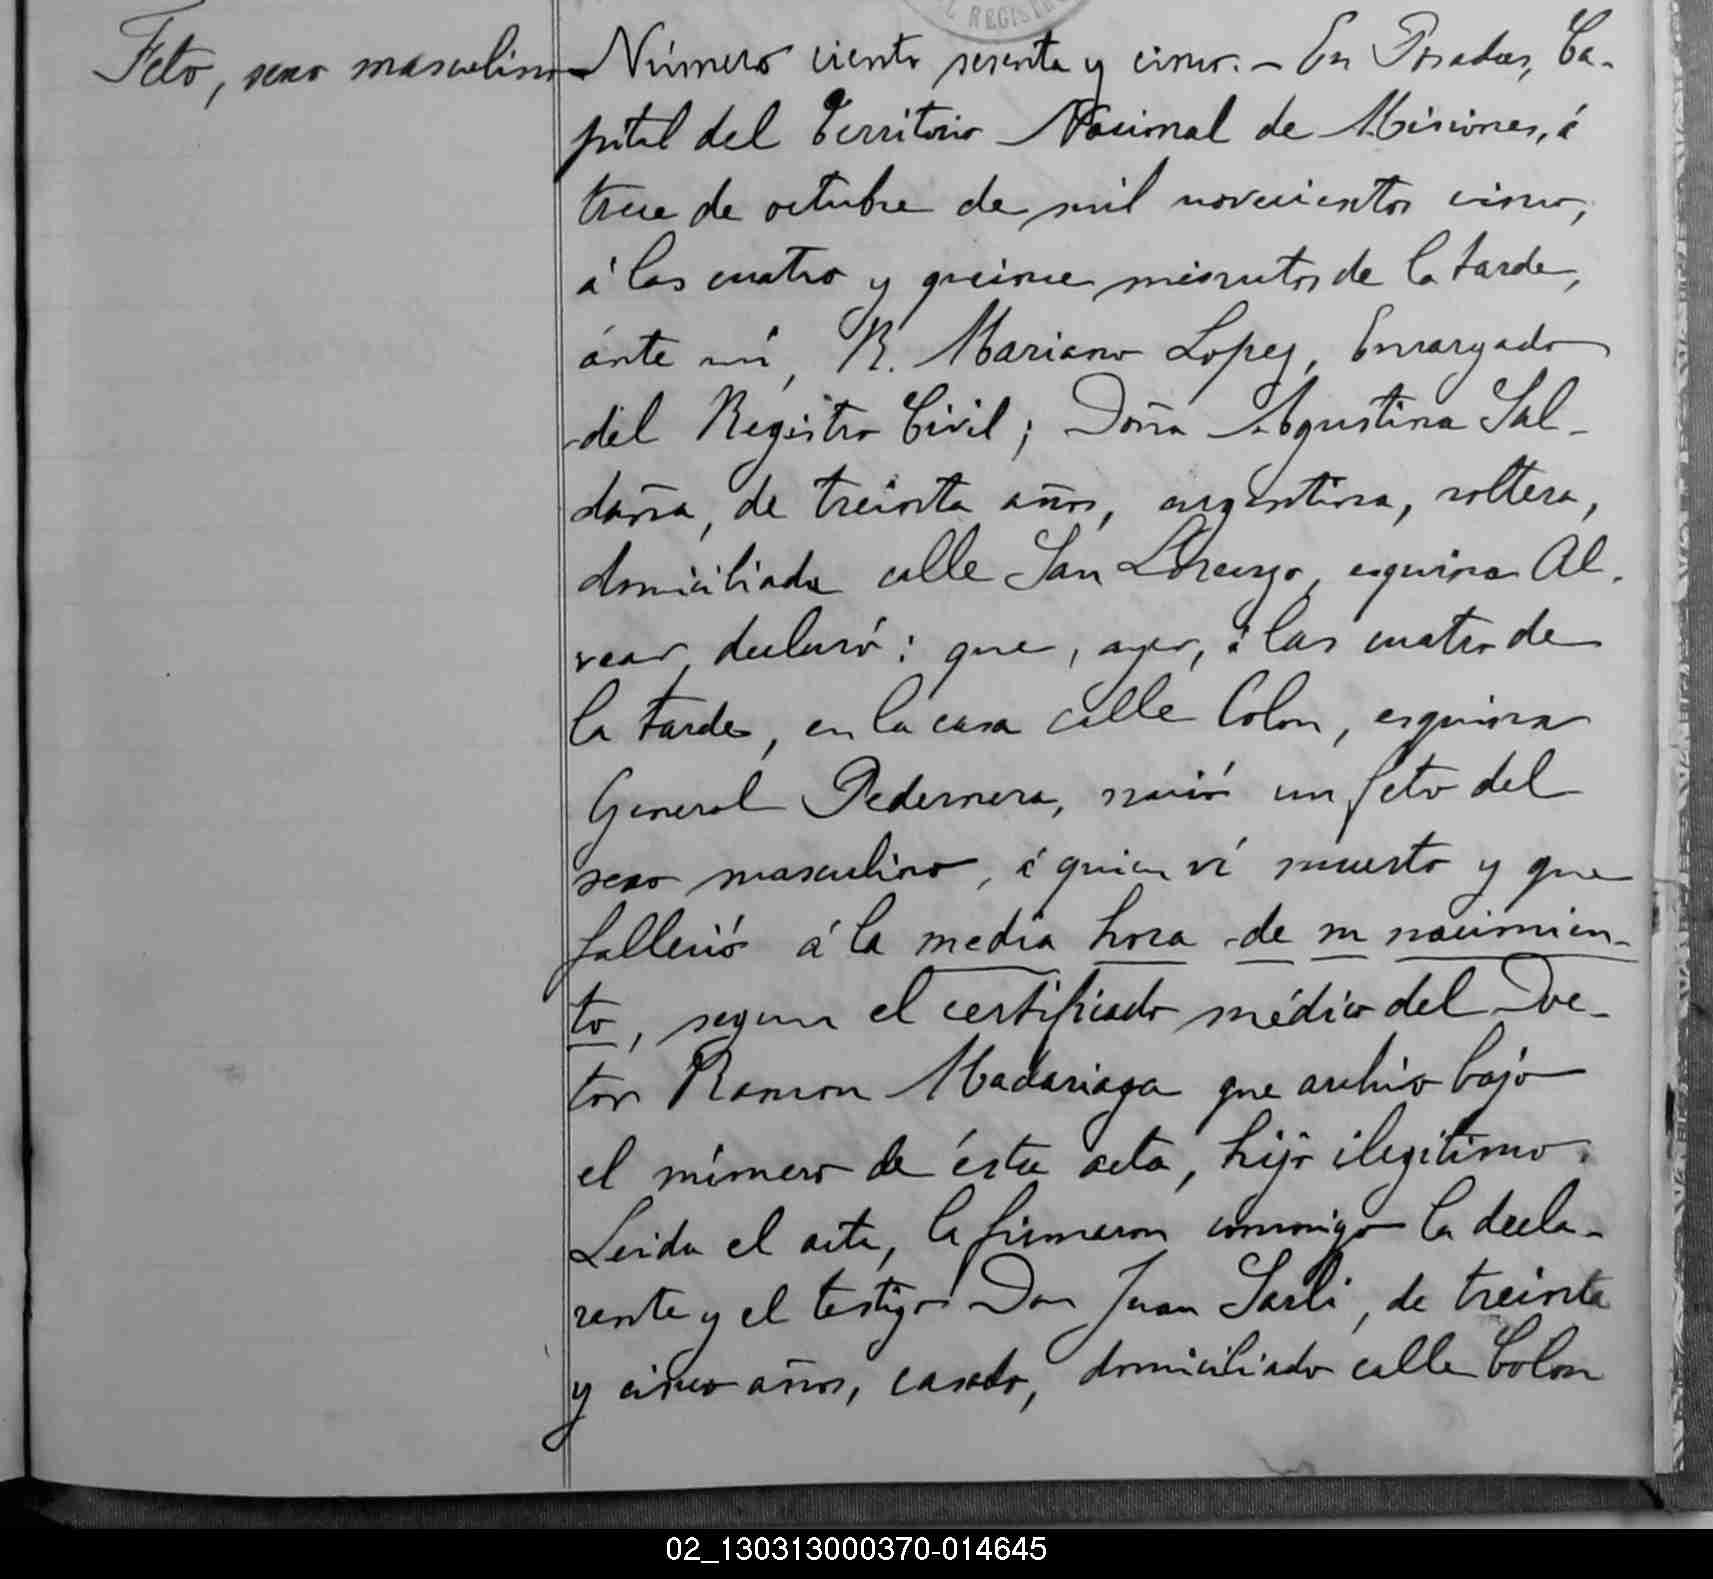 L REGISTR
Feto, sexo masculino
Número ciento sesenta y cinco.- En Posadas, Ca-
pital del Territorio Nacional de Misiones, á
trece de octubre de mil novecientos cinco,
á las cuatro y quince minutos de la tarde,
ánte mí, R. Mariano Lopez, Encargado
del Registro Civil; Doña Agustina Sal-
daña, de treinta años, argentina, soltera,
domiciliada calle San Lorenzo, esquina Al-
vear, declaró: que, ayer, á las cuatro de
la tarde, en la casa calle Colon, esquina
General Pedernera, nació un feto del
sexo masculino, á quien ví muerto y que
falleció á la media hora de su nacimien-
to, segun el certificado médico del Doc-
tor Ramon Madariaga que archivo bajo
el número de ésta acta, hijo ilegítimo.
Leida el acta, la firmaron conmigo la decla-
rante y el testigo Don Juan Sarli, de treinta
y cinco años, casado, domiciliado calle Colon
02_130313000370-014645